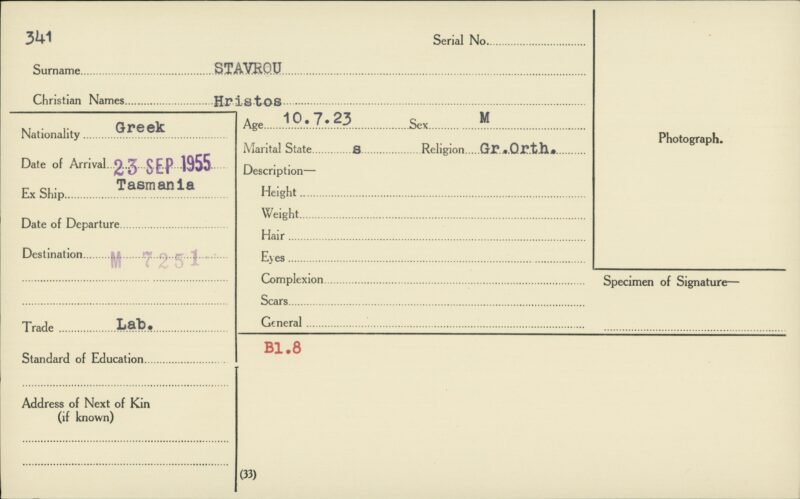 341
Serial No.
Surname STAVROU
Christian Names Hristos
Nationality Greek
Date of Arrival 23 SEP 1955
Ex Ship Tasmania
Date of Departure
Destination M 7251
Trade Lab.
Standard of Education
Address of Next of Kin
(if known)
Age 10.7.23 Sex M
Marital State s Religion Gr.Orth.
Description—
Height
Weight
Hair
Eyes
Complexion
Scars
General
B1.8
(33)
Photograph.
Specimen of Signature—